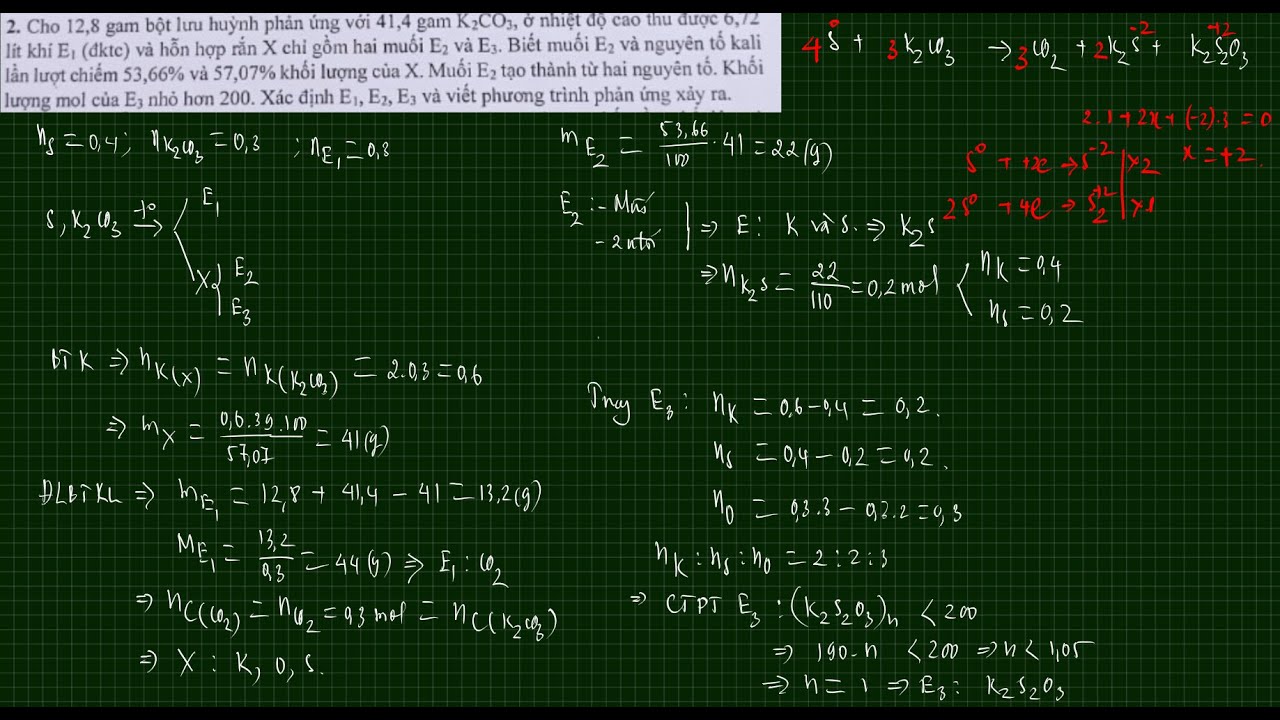 2. Cho 12,8 gam bột lưu huỳnh phản ứng với 41,4 gam K₂CO₃, ở nhiệt độ cao thu được 6,72
lít khí E₁ (đktc) và hỗn hợp rắn X chỉ gồm hai muối E₂ và E₃. Biết muối E₂ và nguyên tố kali
lần lượt chiếm 53,66% và 57,07% khối lượng của X. Muối E₂ tạo thành từ hai nguyên tố. Khối
lượng mol của E₃ nhỏ hơn 200. Xác định E₁, E₂, E₃ và viết phương trình phản ứng xảy ra.
4S⁰ + 3K₂CO₃ → 3CO₂ + 2K₂S⁻² + K₂S₂⁺²O₃
2.1+2x+(-2).3=0
x=+2.
S⁰ + +2e → S⁻² | x2
2S⁰ +4e → S₂⁺² | x1
nS = 0,4; nK₂CO₃ = 0,3 ; nE₁ = 0,3
S, K₂CO₃ →t°
E₁
X
E₂
E₃
BTK ⇒ nK(X) = nK(K₂CO₃) = 2.0,3 = 0,6
⇒ mX = 0,6.39.100/57,07 = 41(g)
ĐLBTKL ⇒ mE₁ = 12,8 + 41,4 - 41 = 13,2(g)
ME₁ = 13,2/0,3 = 44(g) ⇒ E₁: CO₂
⇒ nC(CO₂) = nCO₂ = 0,3 mol = nC(K₂CO₃)
⇒ X : K, O, S.
mE₂ = 53,66/100 . 41 = 22(g)
E₂ : - Muối
- 2 ntố
⇒ E: K và S. ⇒ K₂S
⇒ nK₂S = 22/110 = 0,2 mol
nK = 0,4
nS = 0,2
Trong E₃: nK = 0,6-0,4 = 0,2.
nS = 0,4 - 0,2 = 0,2.
nO = 0,3.3 - 0,3.2 = 0,3
nK : nS : nO = 2:2:3
⇒ CTPT E₃ : (K₂S₂O₃)n < 200
⇒ 190.n < 200 ⇒ n < 1,05
⇒ n = 1 ⇒ E₃: K₂S₂O₃